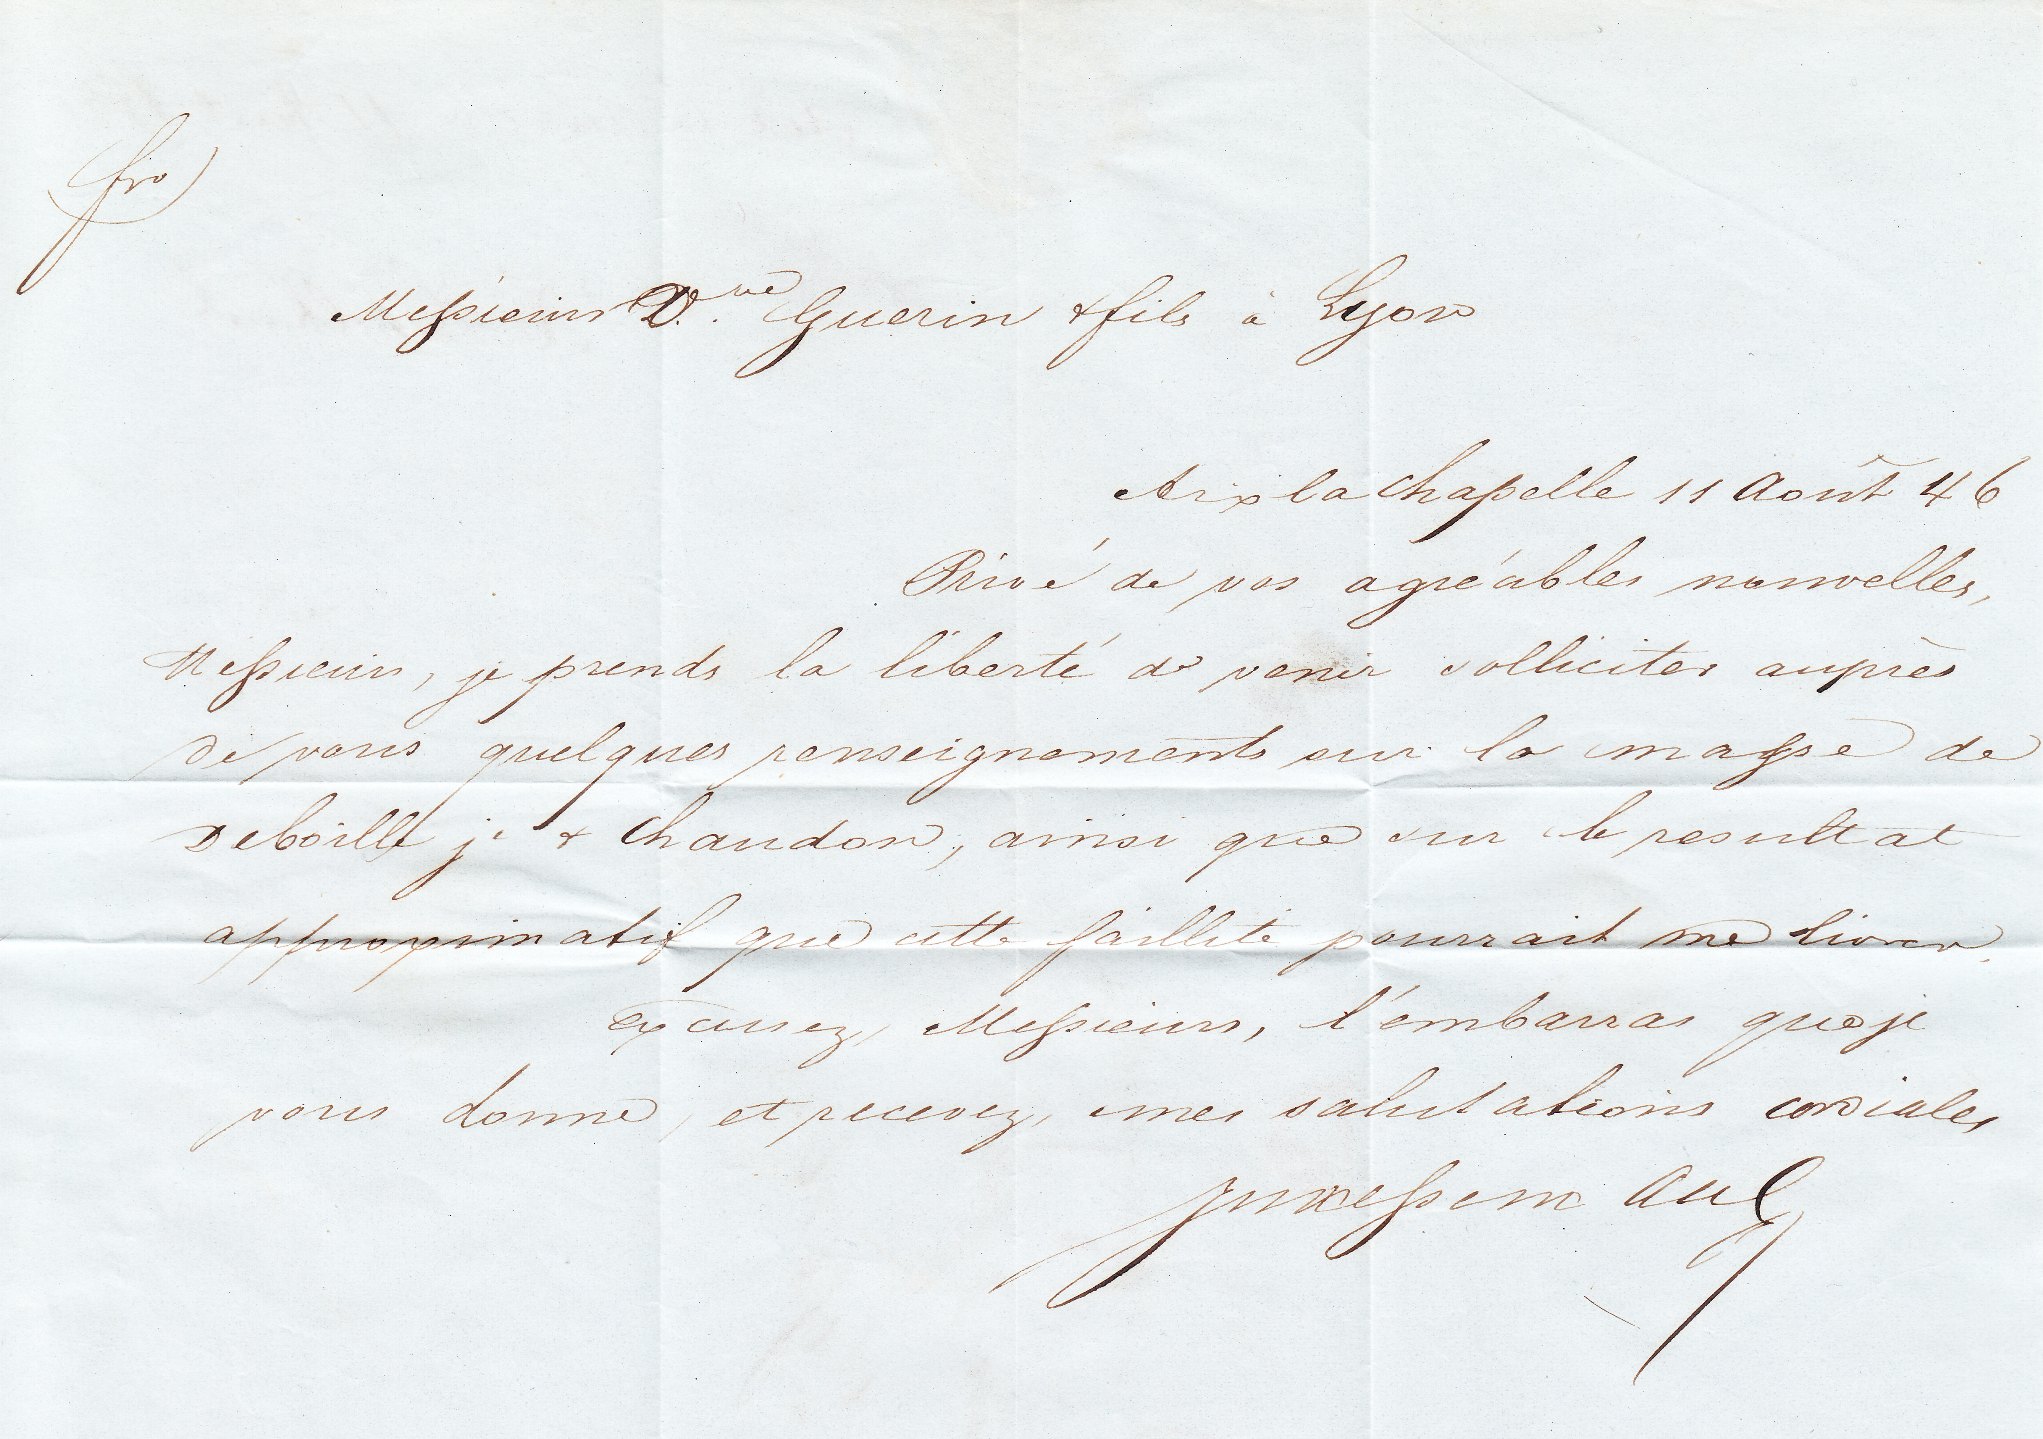 fro
Messieurs Vve Guerin & fils à Lyon
Aix la Chapelle 11 Août 46
Privé de vos agréables nouvelles,
Messieurs, je prends la liberté de venir solliciter auprès
de vous quelques renseignements sur la masse de
Deboille je & Chaudon, ainsi que sur le resultat
approximatif que cette faillite pourrait me livrer.
Excusez, Messieurs, l'embarras que je
vous donne, et recevez, mes salutations cordiales